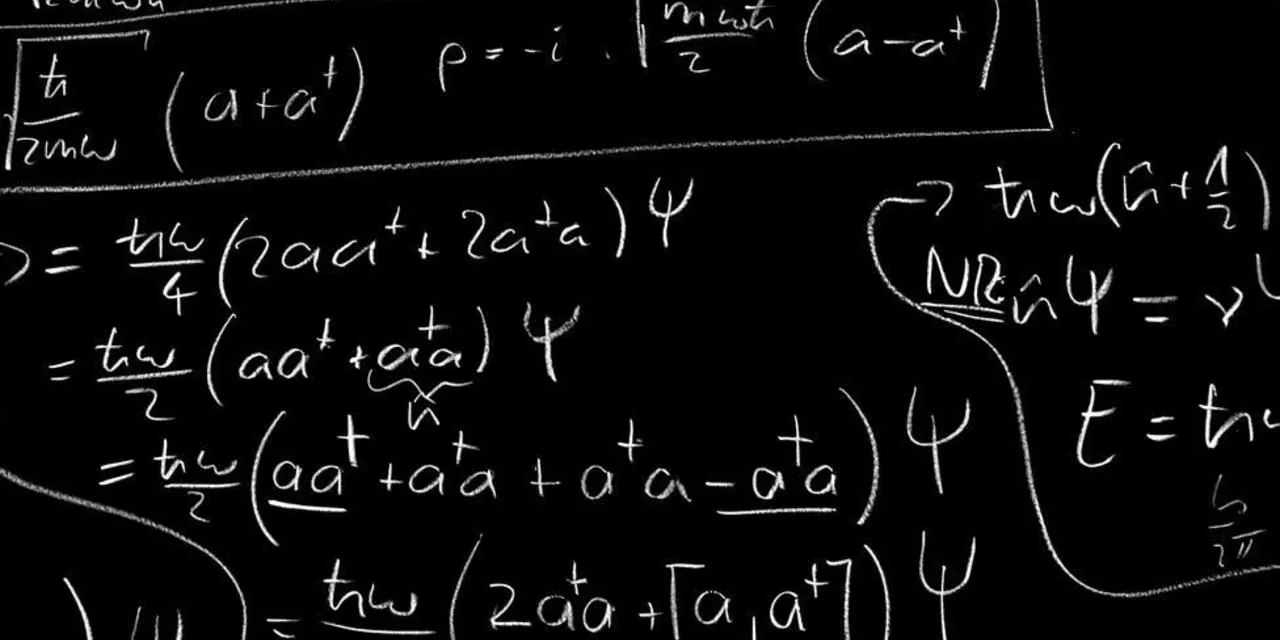 √(ħ/2mω) (a+a†)   p = -i · √(mωħ/2) (a-a†)
= ħω/4 (2aa† + 2a†a) Ψ
= ħω/2 (aa† + a†a) Ψ
n̂
= ħω/2 (aa† + a†a + a†a - a†a) Ψ
= ħω (2a†a + [a, a†]) Ψ
→ ħω(n̂ + 1/2)
NR n̂Ψ = ν
E = ħ
h/2π